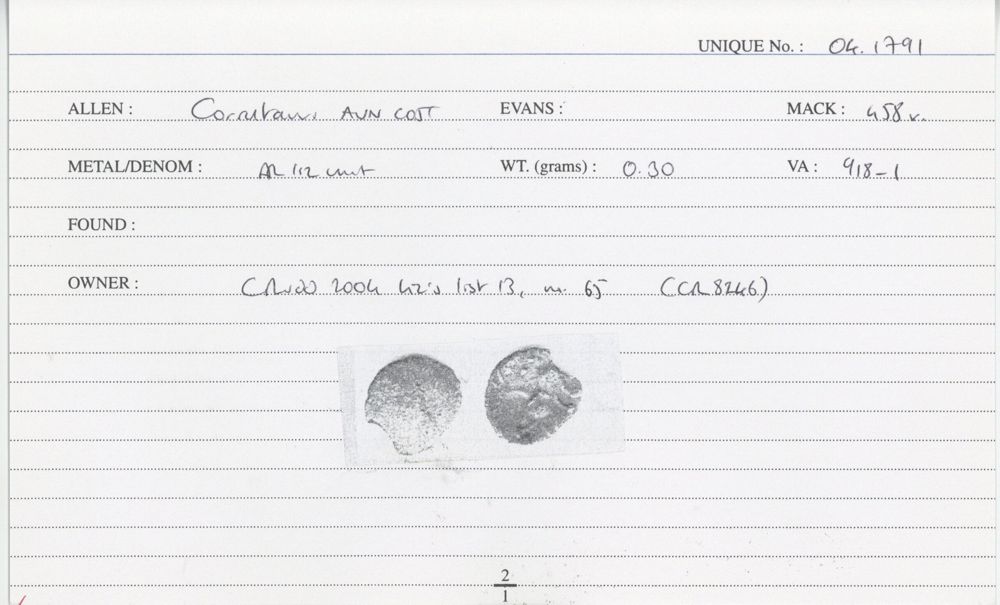 UNIQUE No. : 04.1791
ALLEN : Corieltauvi AVN COST EVANS : MACK : 458 v.
METAL/DENOM : AR 1/2 unit WT. (grams) : 0.30 VA : 918-1
FOUND :
OWNER : 2004 list 13, no. 65 (CCR 8246)
2
1